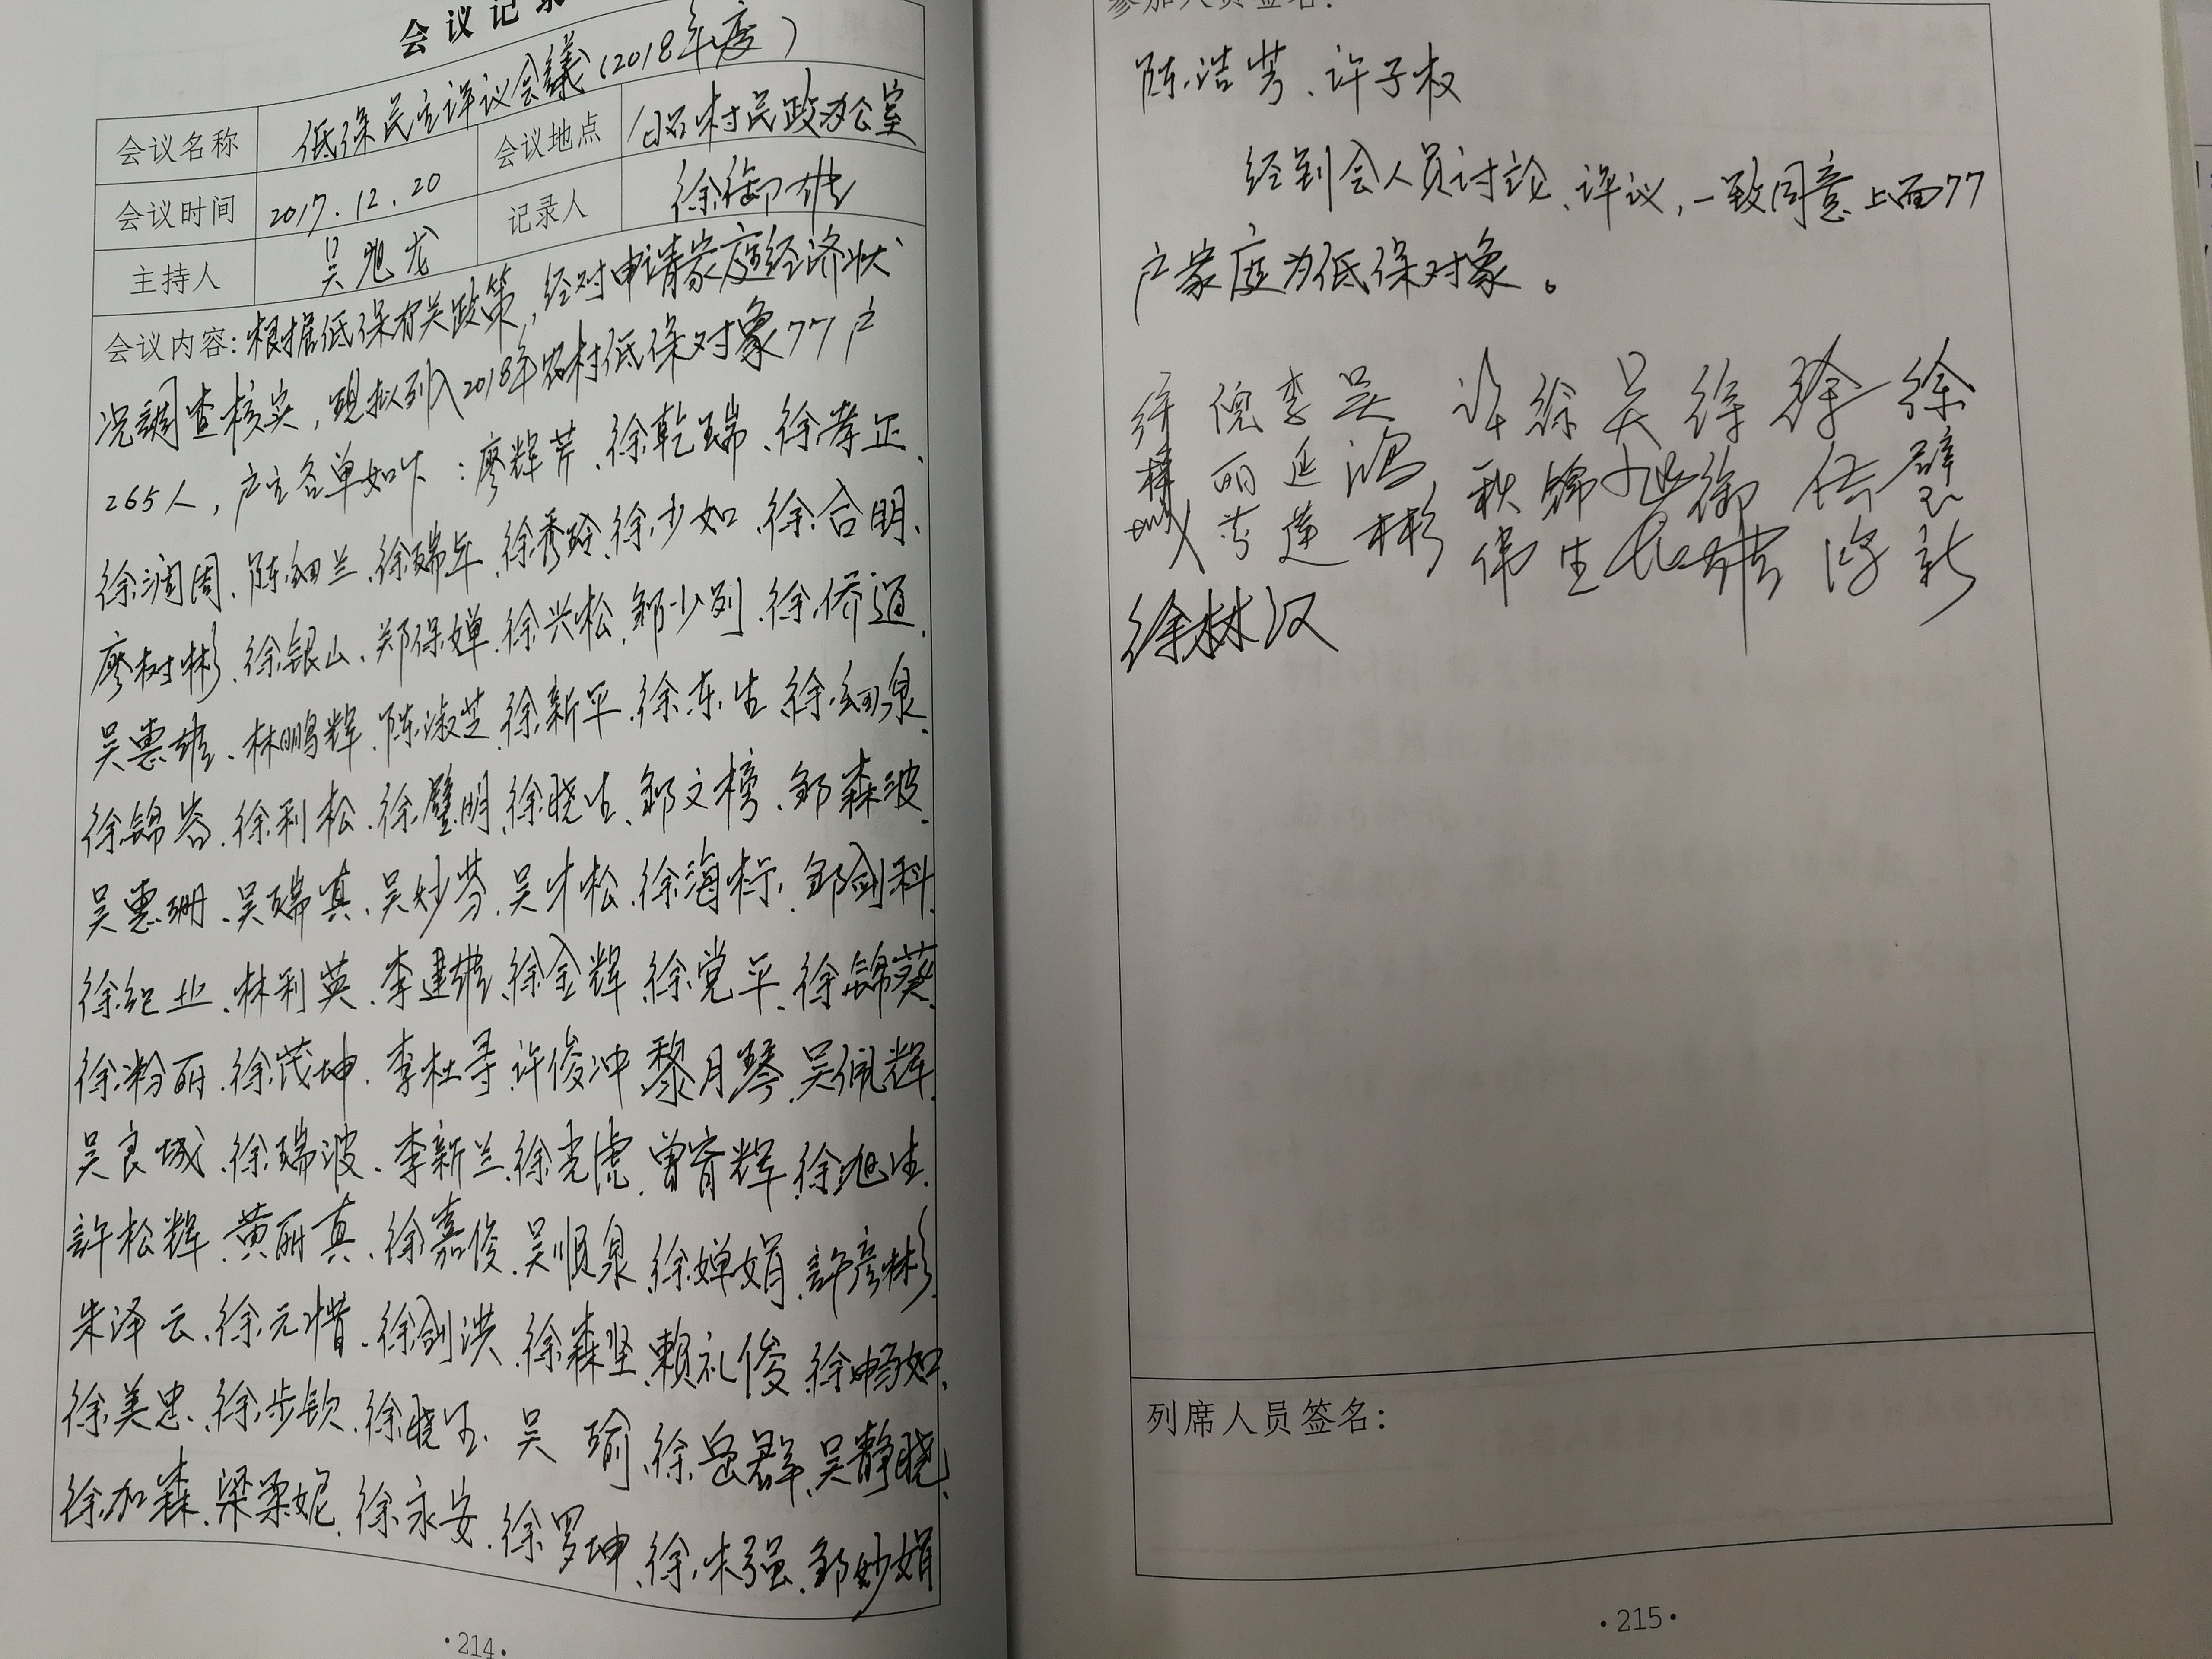 会议记录
会议名称 低保民主评议会議（2018年度） 会议地点 白石村民政办公室
会议时间 2017.12.20 记录人 徐御雄
主持人 吴旭龙
会议内容：根据低保有关政策，经对申请家庭经济状
况調查核实，现拟列入2018年农村低保对象77户
265人，户主名单如下：廖辉芹、徐乾瑞、徐孝正、
徐润周、陈细兰、徐瑞年、徐秀玲、徐少如、徐合明、
廖树彬、徐银山、郑保婵、徐兴松、邹少列、徐侨通、
吴惠雄、林鹏辉、陈淑芝、徐新平、徐东生、徐细泉、
徐锦容、徐利松、徐璧明、徐晓生、邹文榜、邹森波、
吴惠珊、吴瑞真、吴妙芬、吴才松、徐海标、邹剑科、
徐纪业、林利英、李建雄、徐金辉、徐党平、徐锦葵、
徐粉丽、徐茂坤、李杜寻、许俊冲、黎月琴、吴佩辉、
吴良城、徐瑞波、李新兰、徐光虎、曾宵辉、徐旭生、
許松辉、黄丽真、徐嘉俊、吴顺泉、徐婵娟、許彦彬、
朱泽云、徐元惜、徐剑洪、徐森坚、赖礼俊、徐畅如、
徐美忠、徐步钦、徐晓玉、吴瑜、徐岳群、吴静晓、
徐加森、梁柔妮、徐永安、徐罗坤、徐木强、邹妙娟
·214·
参加人员签名：
陈浩芳、许子权
经到会人员讨论、评议，一致同意上面77
户家庭为低保对象。
倪丽芳 李延莲 吴鸿彬 许秋伟 徐锦生 吴旭龙 徐御雄 徐璧新
徐林汉
列席人员签名：
·215·